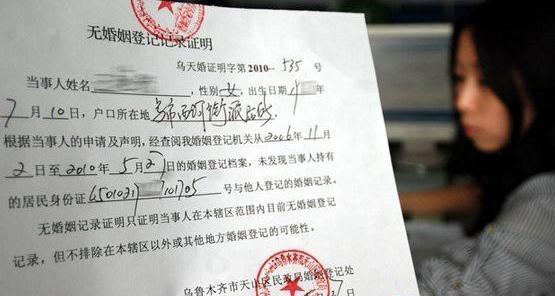 无婚姻登记记录证明
乌天婚证明字第2010-535 号
当事人姓名 ，性别 女，出生日期 年
7 月 10 日，户口所在地
根据当事人的申请及声明，经查阅我婚姻登记机关从 2006 年 11 月
2 日至 2010 年 5 月 27 日的婚姻登记档案，未发现当事人持有
的居民身份证 号与他人登记的婚姻记录。
无婚姻记录证明只证明当事人在本辖区范围内目前无婚姻登记
记录，但不排除在本辖区以外或其他地方婚姻登记的可能性。
乌鲁木齐市天山区民政局婚姻登记处